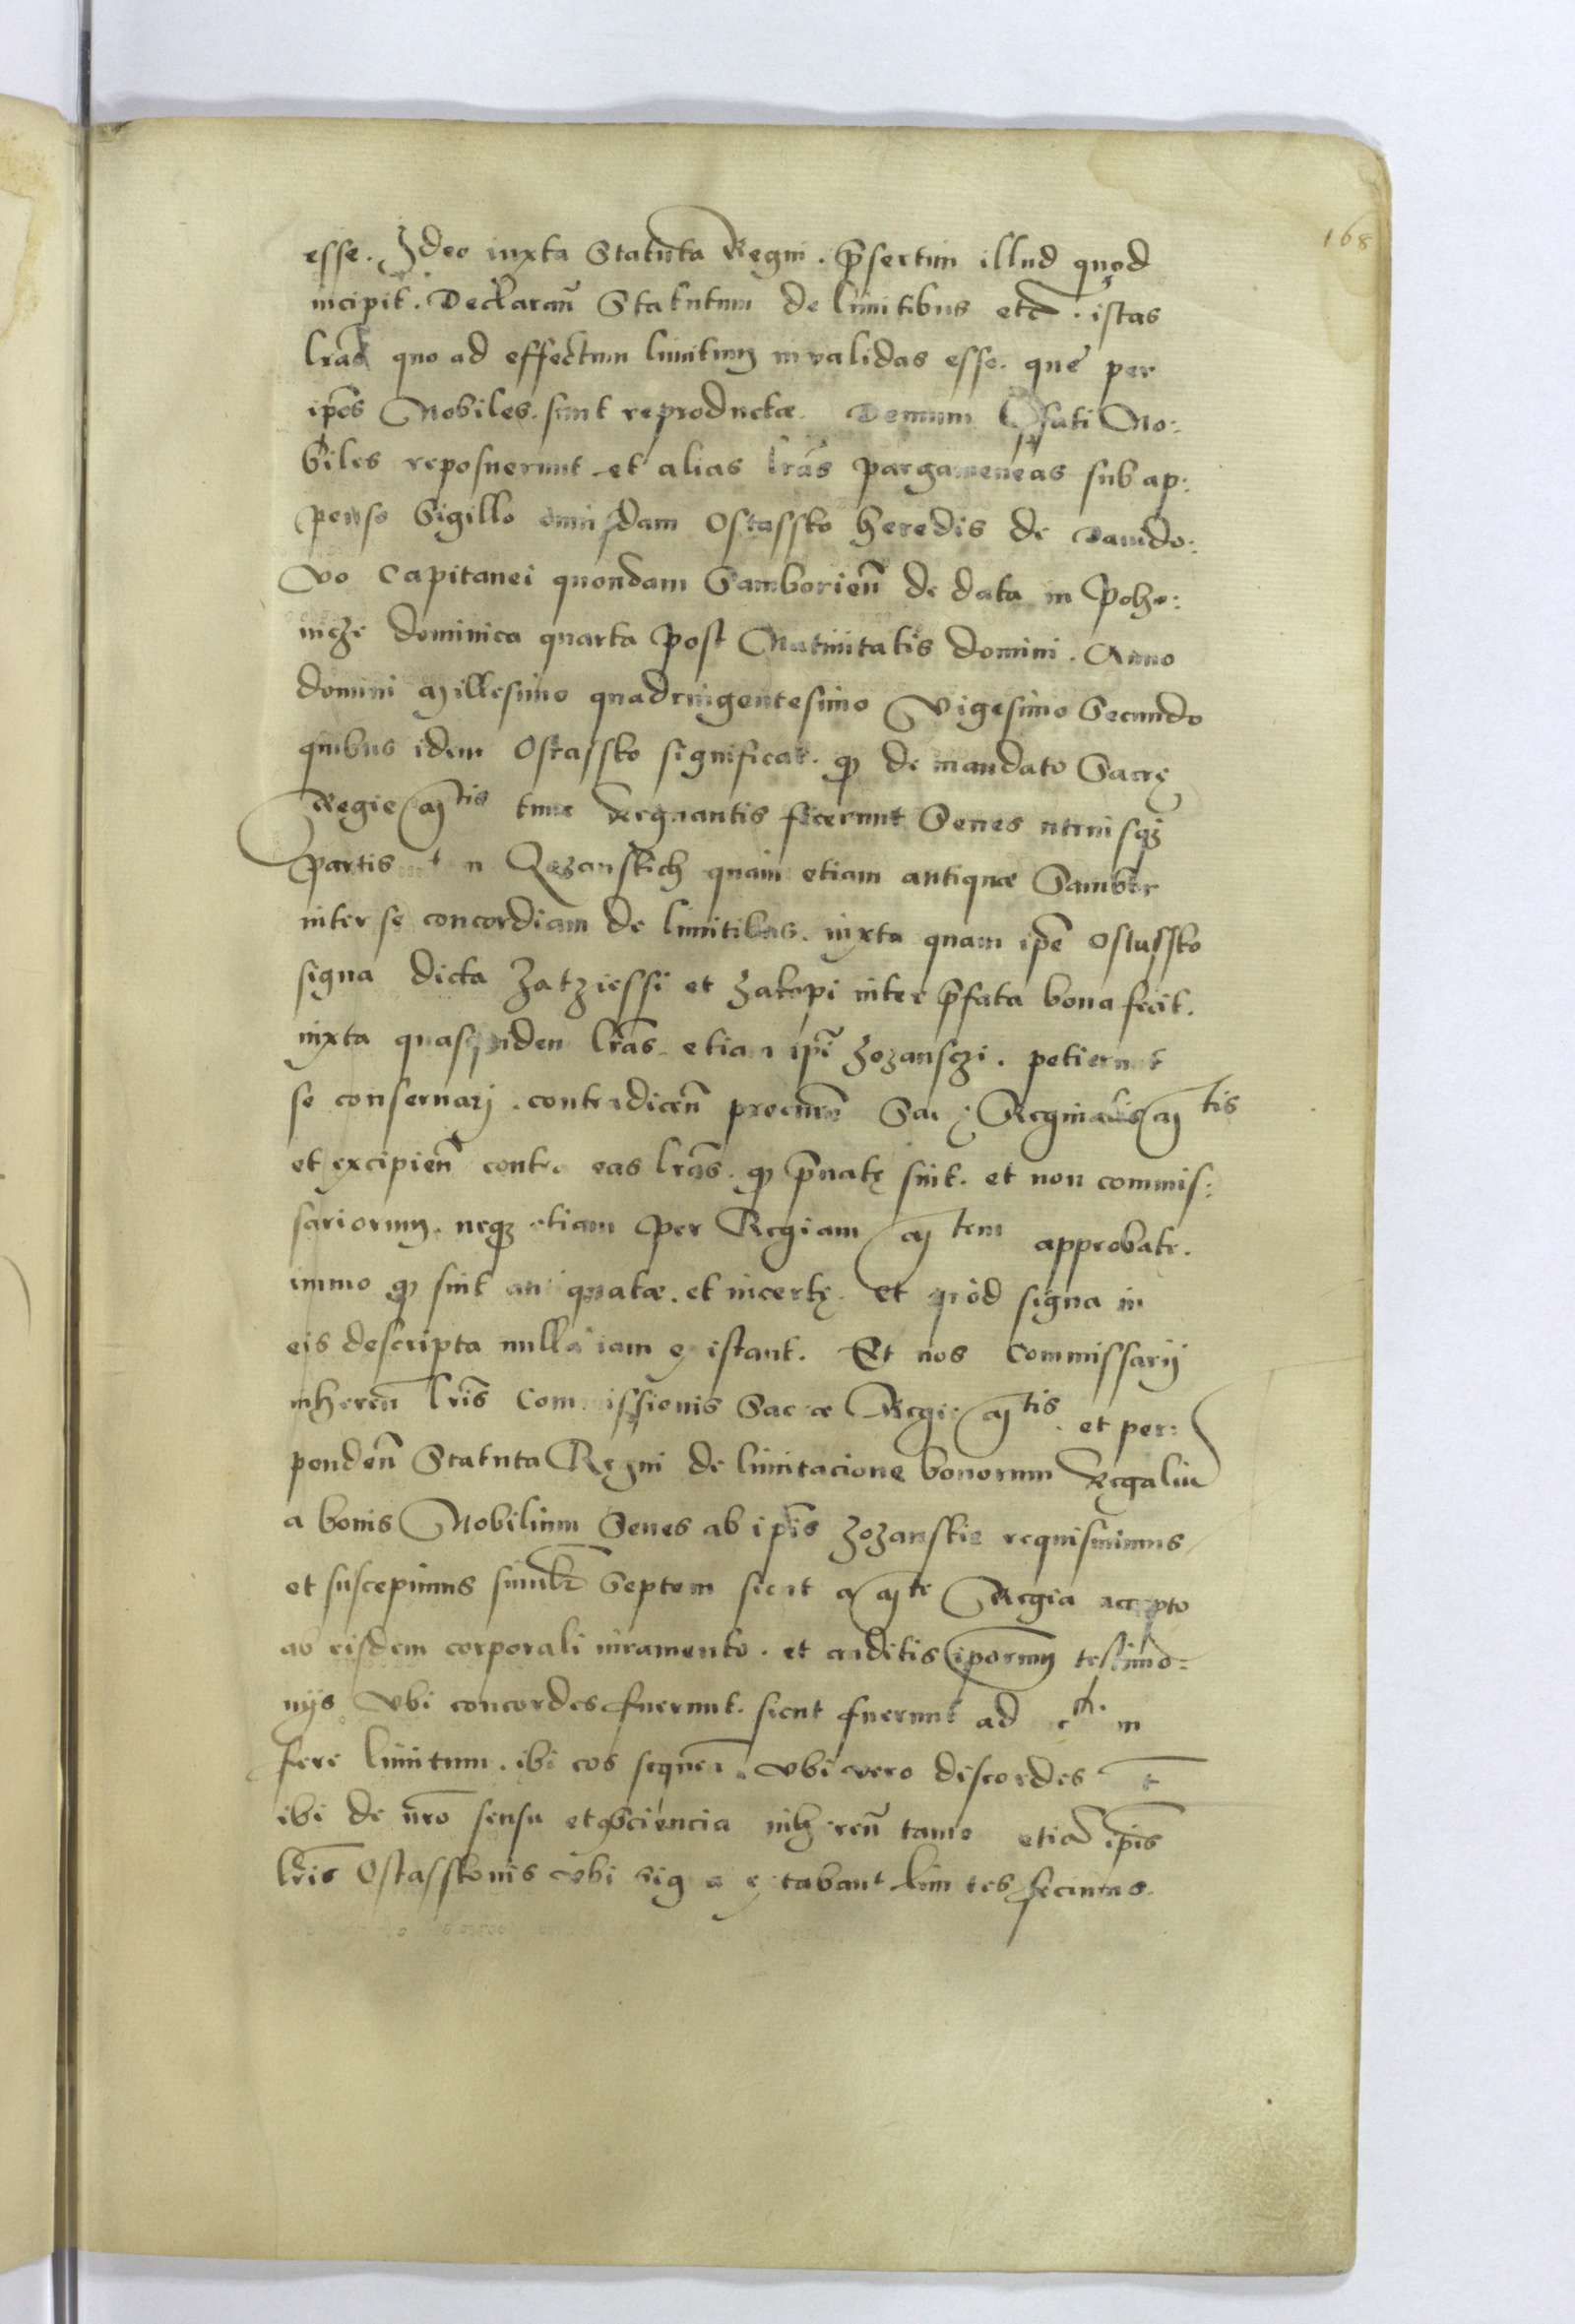 168
esse. Ideo iuxta Statuta Regni. p̄sertim illud quod
incipit. Declaran̄ Statutum de limitibus etc̄. istas
lr̄as quo ad effectum limitum invalidas esse. que per
ip̄os Nobiles. sunt reproductæ. Demum p̄fati No:
biles reposuerunt et alias lr̄as pargameneas sub ap:
penso Sigillo cuiusdam Ostassko heredis de Dauido:
vo Capitanei quondam Samborien̄ de data in Pohe:
nicze dominica quarta post Natiuitatis domini. Anno
domini Millesimo quadringentesimo Vigesimo Secundo
quibus idem Ostassko significat. qͦ de mandato Sacrę
Regie Mtis tunc Regnantis fecerunt Senes utriusqȝ
partis quam etiam antiquæ Sambor
inter se concordiam de limitibus. iuxta quam ip̄e Ostassko
signa dicta Zatziessi et Zakopi inter p̄fata bona fecit.
iuxta quasquidem lr̄as etiam ip̄i Zozansczi. petierunt
se conseruarj. contradicen̄ Reginalis Mtis
et excipien̄ contra eas lr̄as. qͦ p̄uatę sint. et non commis:
sariorum. neqȝ etiam per Regiam Mtem approbate.
immo qͦ sint antiquatæ. et incertę. et quod signa in
eis descripta nulla iam existant. Et nos Commissarij
inheren̄ lr̄is Commissionis Sacræ Regie Mtis. et per:
penden̄ Statuta Regni de limitacione bonorum Regaliū
a bonis Nobilium Senes ab ip̄is Zozanskie requisiuimus
et suscepimus Septem sicut a Mte Regia accepto
ab eisdem corporali iuramento. et auditis ip̄orum testimo:
nijs Vbi concordes fuerunt. sicut fuerunt ad in
fere limitum. ibi eos Vbi vero discordes
ibi de nr̄o sensu et inheren̄ etiā ip̄is
lr̄is Ostasskonis vbi signa extabant limites fecimus.